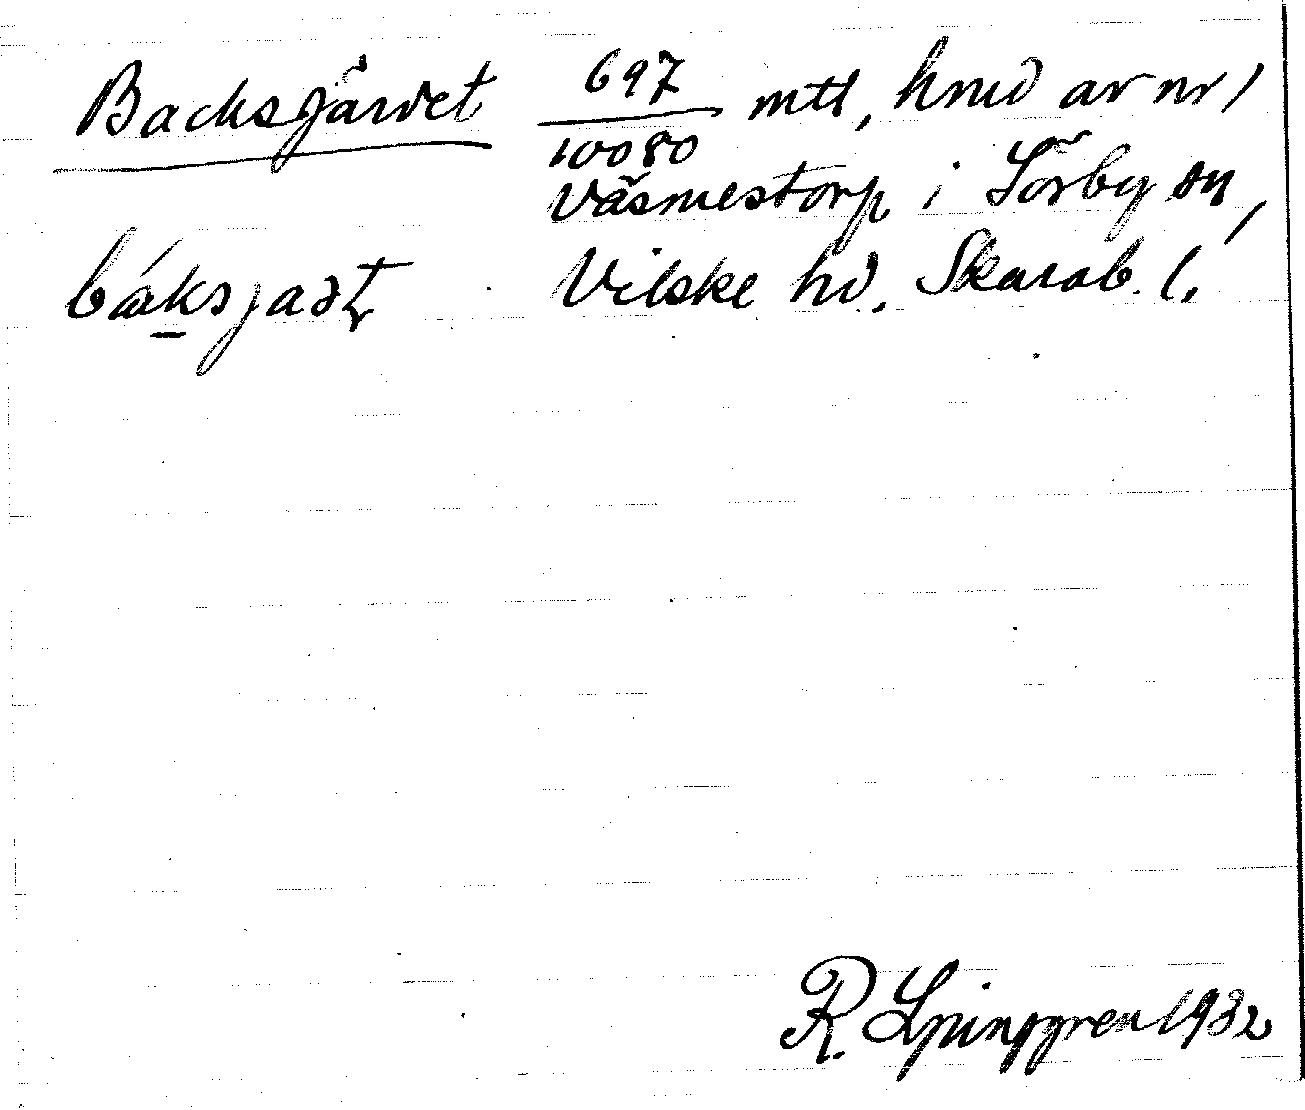 Backsgärdet 697/10080 mtl, hmd av nr 1
Väsmestorp i Sörby sn,
Vilske hd. Skarab. l.
R. Ljunggren 1932